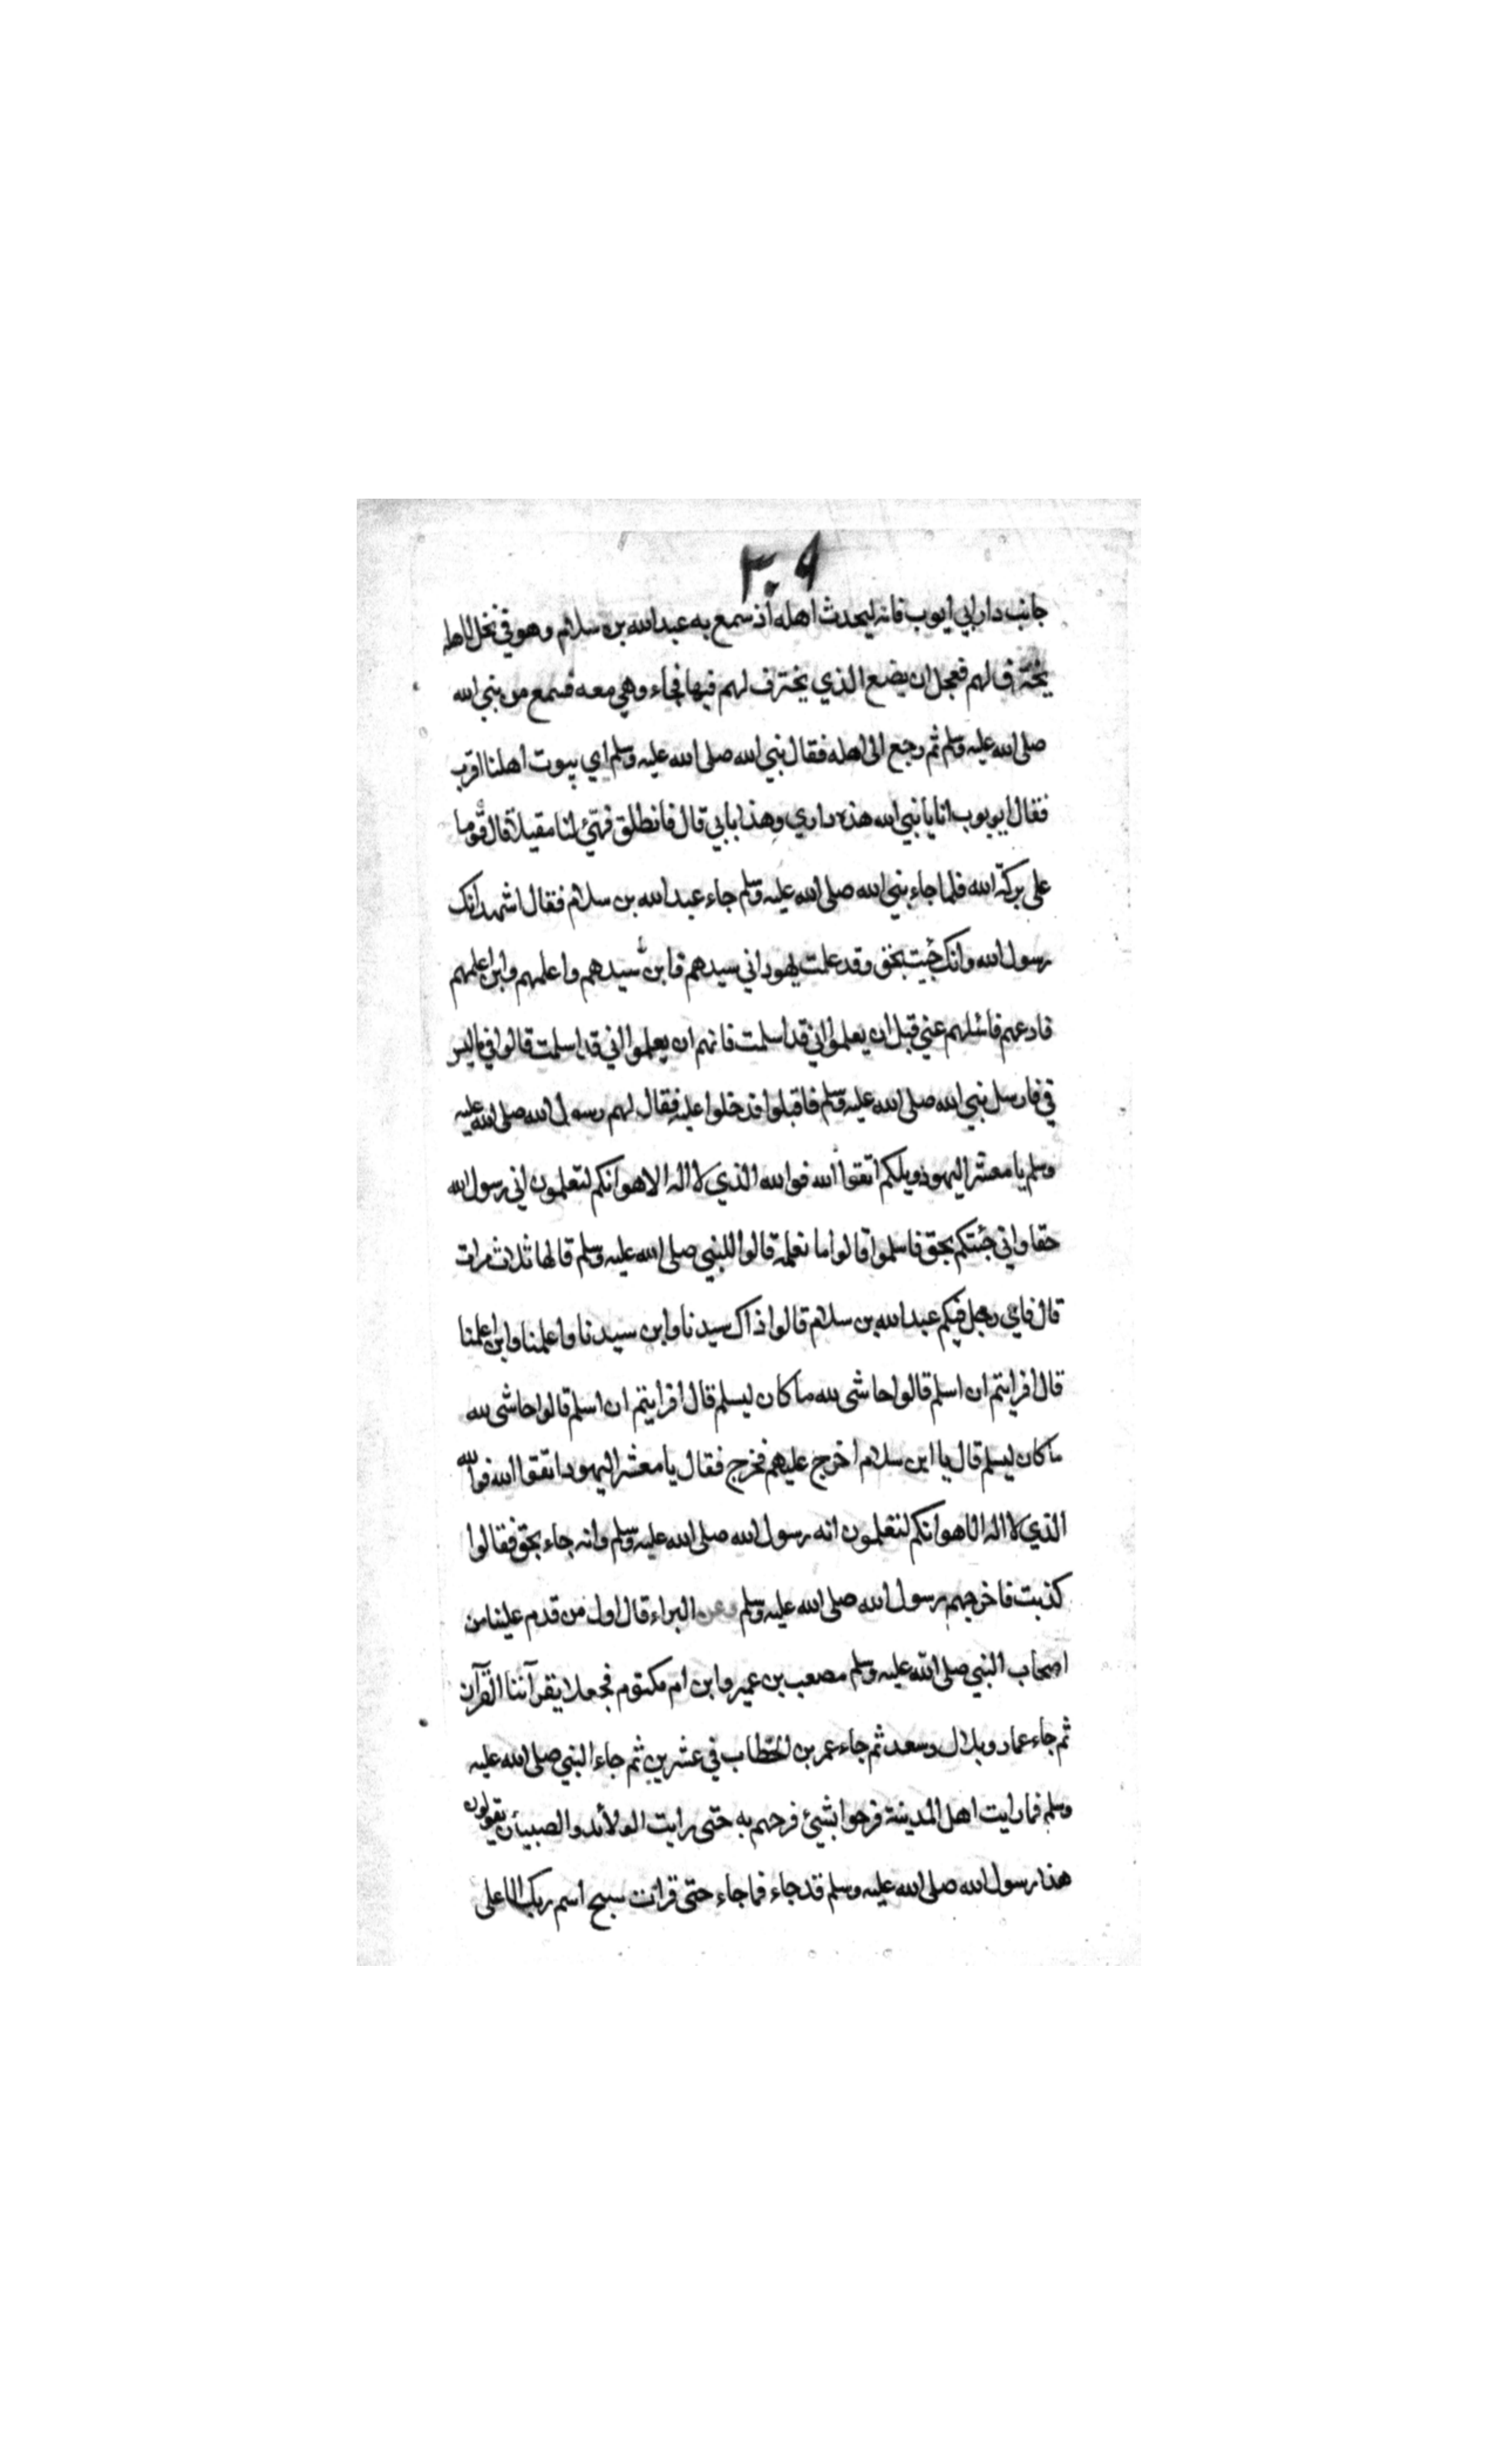 ٣٠٩
جانب دار ابي ايوب فانه ليحدث اهله اذ سمع به عبدالله بن سلام وهو في نخل لاهله
يخترف لهم فعجل ان يضع الذي يخترف لهم فيها فجاء وهي معه فسمع من نبي الله
صلى الله عليه وسلم ثم رجع الى اهله فقال نبي الله صلى الله عليه وسلم اي بيوت اهلنا اقرب
فقال ابو يوب انا يا نبي الله هذه داري وهذا بابي قال فانطلق فهيئ لنا مقيلا قال قوما
على بركة الله فلما جاء نبي الله صلى الله عليه وسلم جاء عبد الله بن سلام فقال اشهد انك
رسول الله وانك جئت بحق وقد علمت يهود اني سيدهم وابن سيدهم واعلمهم وابن اعلمهم
فادعهم فاسئلهم عني قبل ان يعلموا اني قد اسلمت فانهم ان يعلموا اني قد اسلمت قالوا في ما ليس
في فارسل نبي الله صلى الله عليه وسلم فاقبلوا فدخلوا عليه فقال لهم رسول الله صلى الله عليه
وسلم يا معشر اليهود ويلكم اتقوا الله فوالله الذي لا اله الا هو انكم لتعلمون اني رسول الله
حقا واني جئتكم بحق فاسلموا قالوا ما نعلمه قالوا للنبي صلى الله عليه وسلم قالها ثلاث مرات
قال فاي رجل فيكم عبد الله بن سلام قالوا ذاك سيدنا وابن سيدنا واعلمنا وابن اعلمنا
قال افرايتم ان اسلم قالوا حاشى لله ما كان ليسلم قال افرايتم ان اسلم قالوا حاشى لله
ما كان ليسلم قال يا ابن سلام اخرج عليهم فخرج فقال يا معشر اليهود اتقوا الله فوالله
الذي لا اله الا هو انكم لتعلمون انه رسول الله صلى الله عليه وسلم وانه جاء بحق فقالوا
كذبت فاخرجهم رسول الله صلى الله عليه وسلم وعن البراء قال اول من قدم علينا من
اصحاب النبي صلى الله عليه وسلم مصعب بن عمير وابن ام مكتوم فجعلا يقرآننا القرآن
ثم جاء عمار وبلال وسعد ثم جاء عمر بن الخطاب في عشرين ثم جاء النبي صلى الله عليه
وسلم فما رايت اهل المدينة فرحوا بشيئ فرحهم به حتى رايت الولائد والصبيان يقولون
هذا رسول الله صلى الله عليه وسلم قد جاء فما جاء حتى قرات سبح اسم ربك الاعلى